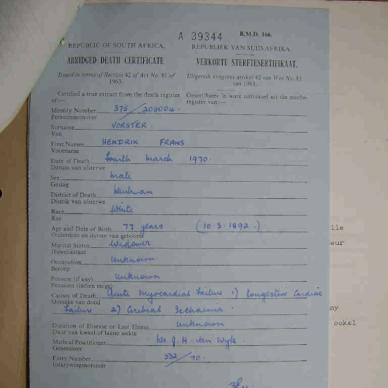 A 39344 B.M.D. 166.
REPUBLIC OF SOUTH AFRICA. REPUBLIEK VAN SUID-AFRIKA.
ABRIDGED DEATH CERTIFICATE VERKORTE STERFTESERTIFIKAAT.
Issued in terms of Section 42 of Act No. 81 of 1963. Uitgereik kragtens artikel 42 van Wet No. 81 van 1963.
Certified a true extract from the death register of:—
Identity Number 375/
Persoonsnommer
Surname VORSTER
Van
First Names HENDRIK FRANS
Voorname
Date of Death fourth march 1970
Datum van afsterwe
Sex male
Geslag
District of Death
Distrik van afsterwe
Race White
Ras
Age and Date of Birth 77 years (10-3-1892.)
Ouderdom en datum van geboorte
Marital Status Widower
Huwelikstaat
Occupation Unknown
Beroep
Pension (if any) Unknown
Pensioen (indien enige)
Causes of Death Acute Myocardial Failure 1) Congestive Cardiac
Oorsake van dood Failure 2) Cerebral Ischaemia
Duration of Disease or Last Illness Unknown
Duur van kwaal of laaste siekte
Medical Practitioner Dr. J. H. van Wyk
Geneesheer
Entry Number 332/70.
Inskrywingsnommer